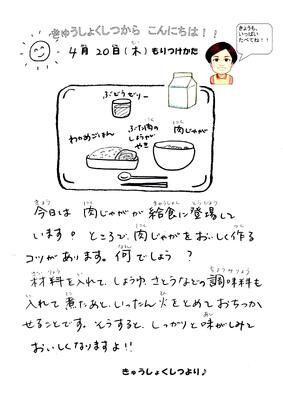 きゅうしょくしつから こんにちは！！
きょうも、
いっぱい
たべてね！！
4月 20日（木）もりつけかた
ぶどうゼリー
わかめごはん
ぶた肉の
しょうが
やき
肉じゃが
今日は 肉じゃがが 給食に登場して
います？ ところで、肉じゃがをおいしく作る
コツがあります。何でしょう？
材料を入れて、しょうゆ、さとうなどの調味料も
入れて煮たあと、いったん火をとめておちつか
せることです。そうすると、しっかりと味がしみて
おいしくなりますよ!!
きゅうしょくしつより♪